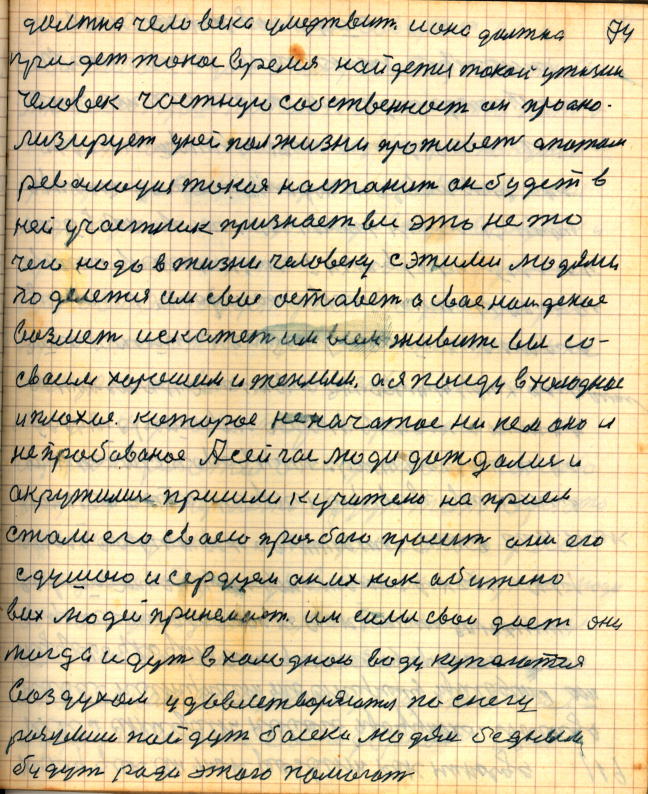 должна человека умертвит. и она должна 74
придет такое время найдется такой у жизни
человек частную собственност он проано-
лизирует у ней пол жизни проживет а потом
революция такая настанит он будет в
ней участник признает ви это не то
чего надо в жизни человеку с этими людями
поделется им свае оставет а свае найденае
возмет и скажет им всем живите вы со
сваем хорошим и теплым. а я пойду в холоднае
и плохое. котороe не начатое ни кем оно и
не пробованое А сейчас люди дождалися и
акружили пришли к учителю на прием
стали его сваею прозбаю просит они его
с душою и сердцем а их как обижено
вих людей принемает. им сили сваи дает они
тогда идут в холодною воду купаются
воздухом удовлетворяются по снегу
разумши пойдут болеки людям бедным
будут ради этого помогат